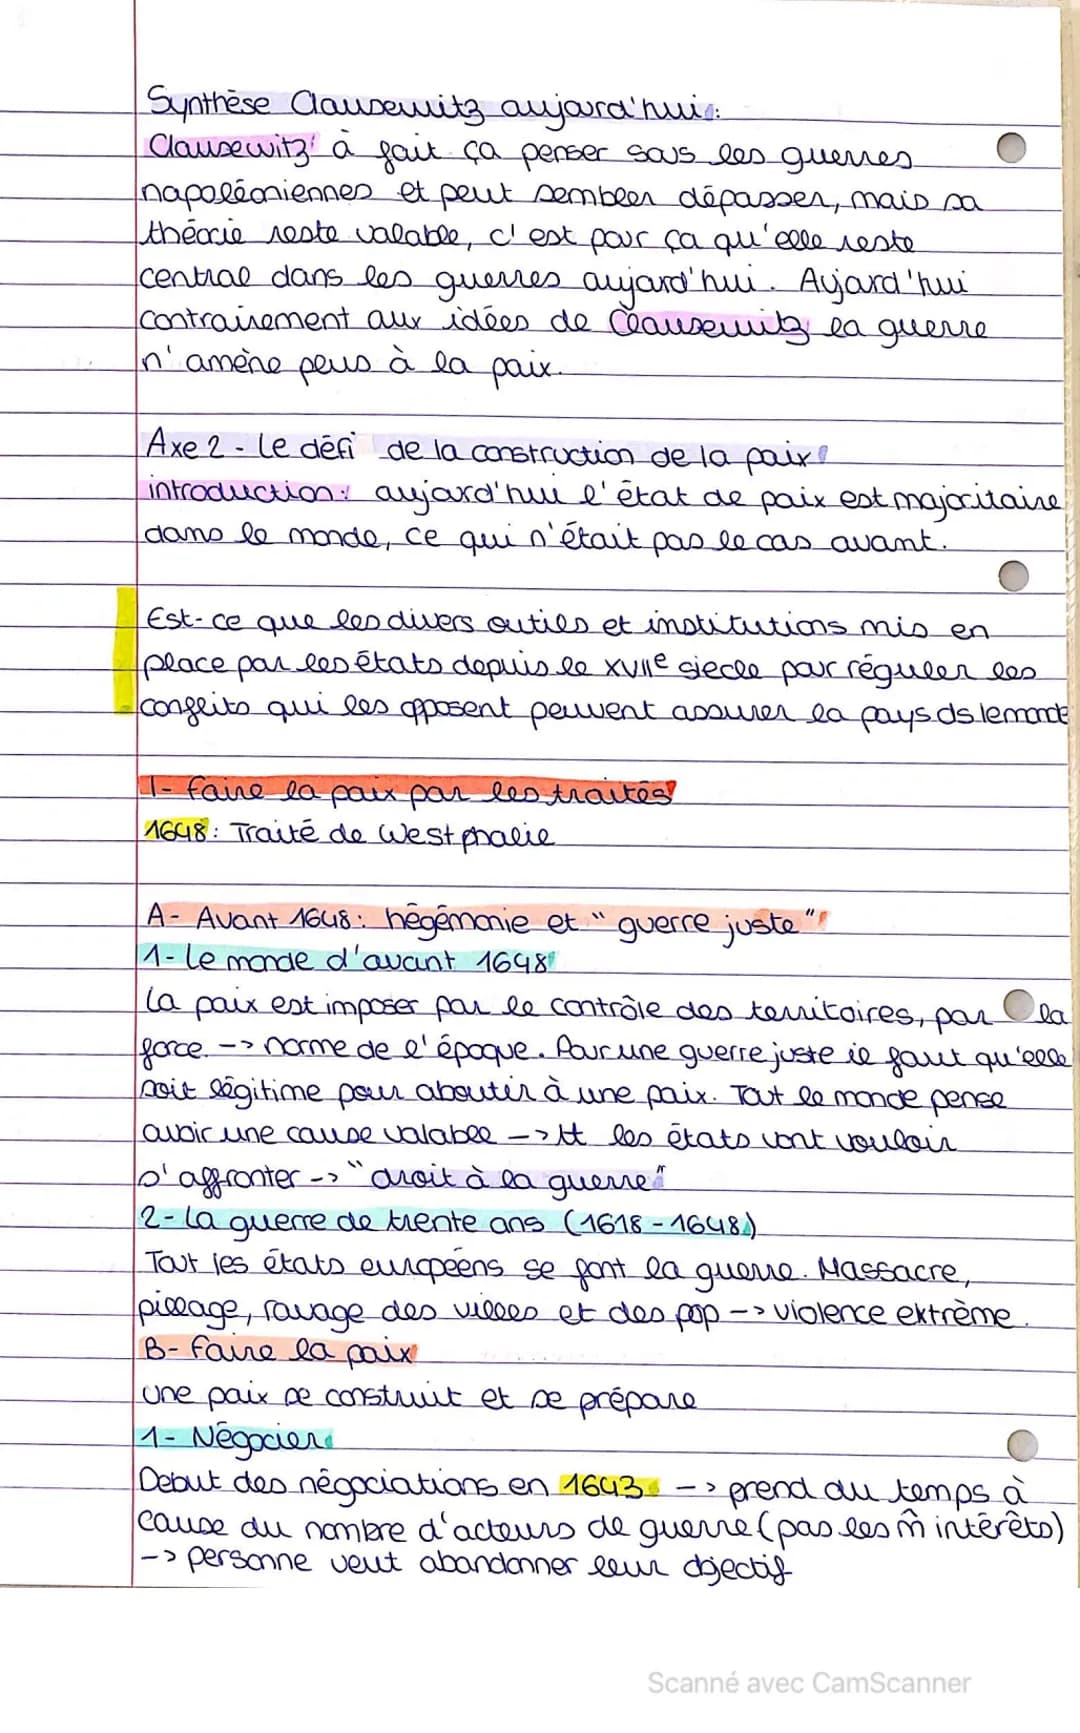 Synthèse Clausewitz aujourd'hui:
Clausewitz à fait ça penser sous les guerres
napoléoniennes et peut sembler dépasser, mais sa
théorie reste valable, c'est pour ça qu'elle reste
central dans les guerres aujourd'hui. Aujourd'hui
contrairement aux idées de Clausewitz la guerre
n'amène plus à la paix.
Axe 2 - Le défi de la construction de la paix
introduction: aujourd'hui l'état de paix est majoritaire
dans le monde, ce qui n'était pas le cas avant.
Est-ce que les divers outils et institutions mis en
place par les états depuis le XVIIe siecle pour réguler les
conflits qui les opposent peuvent assurer la pays ds le monde
I- Faire la paix par les traités
1648: Traité de Westphalie
A- Avant 1648: hégémonie et "guerre juste"
1- Le monde d'avant 1648
La paix est imposer par le contrôle des territoires, par la
force. -> norme de l'époque. Pour une guerre juste il faut qu'elle
soit légitime pour aboutir à une paix. Tout le monde pense
avoir une cause valable -> tt les états vont vouloir
s'affronter -> "droit à la guerre"
2- La guerre de trente ans (1618-1648)
Tout les états européens se font la guerre. Massacre,
pillage, ravage des villes et des pop -> violence extrème.
B- Faire la paix
une paix se construit et se prépare
1- Négocier
Debut des négociations en 1643 -> prend du temps à
cause du nombre d'acteurs de guerre (pas les m̂ intérêts)
-> personne veut abandonner leur objectif
Scanné avec CamScanner